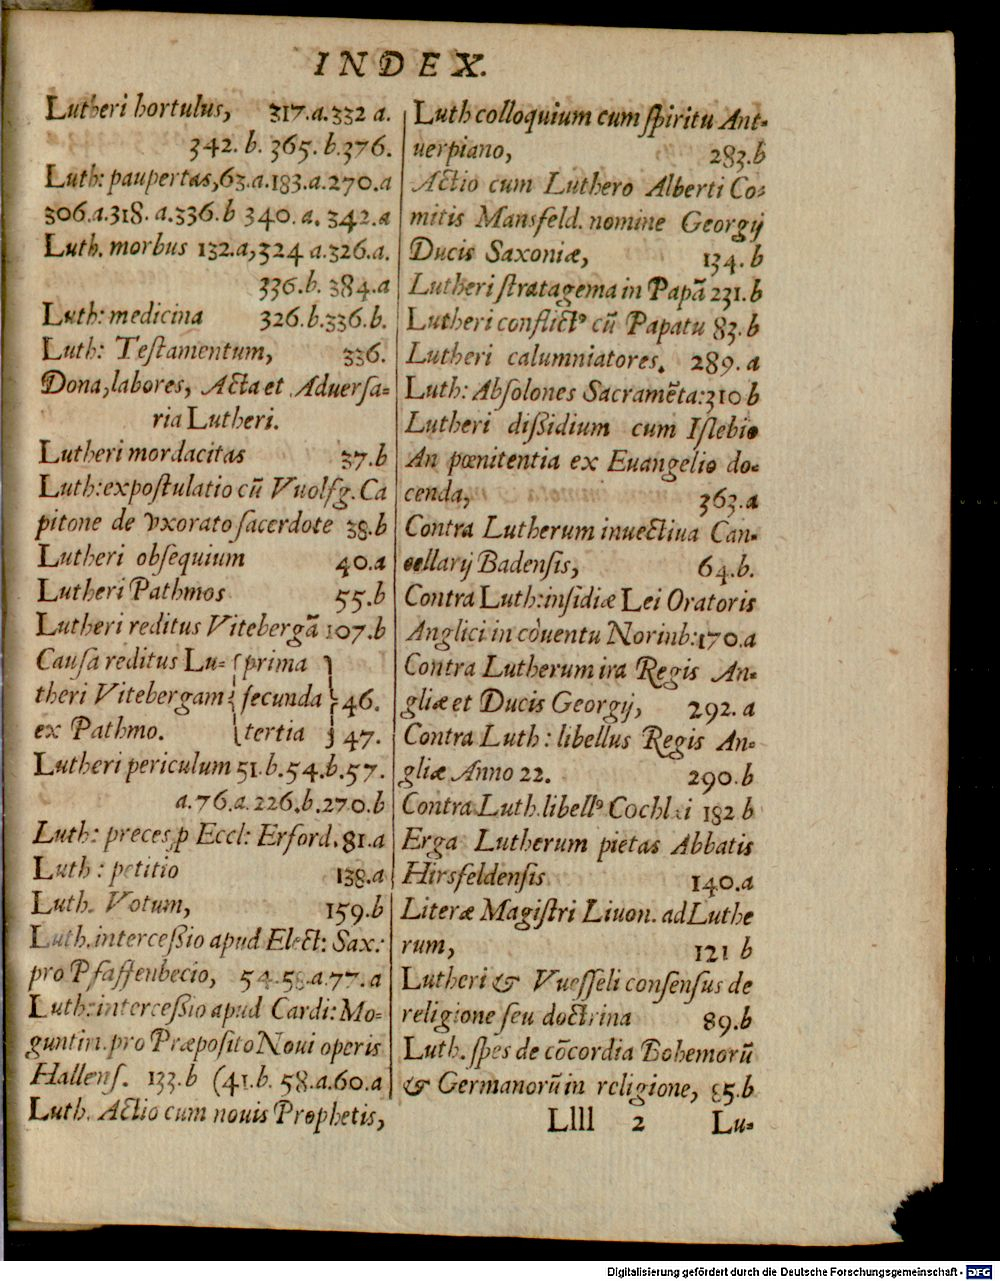 INDEX.
Lutheri hortulus, 317.a.332 a.
342. b. 365. b.376.
Luth: paupertas,63.a.183.a.270.a
306.a.318. a.336.b 340. a. 342.a
Luth. morbus 132.a,324 a.326.a.
336.b. 384.a
Luth: medicina 326.b.336.b.
Luth: Teſtamentum, 336.
Dona,labores, Acta et Aduerſa=
ria Lutheri.
Lutheri mordacitas 37.b
Luth:expoſtulatio cũ Vuolfg. Ca
pitone de vxorato ſacerdote 38.b
Lutheri obſequium 40.a
Lutheri Pathmos 55.b
Lutheri reditus Vitebergã 107.b
Cauſa reditus Lu= prima
theri Vitebergam ſecunda 46.
ex Pathmo. tertia 47.
Lutheri periculum 51.b.54.b.57.
a.76.a.226.b.270.b
Luth: preces,p Eccl: Erford.81.a
Luth: petitio 138.a
Luth. Votum, 159.b
Luth.interceßio apud Elect: Sax:
pro Pfaffenbecio, 54.58.a.77.a
Luth:interceßio apud Cardi:Mo=
guntin.pro Præpoſito Noui operis
Hallenſ. 133.b (41.b. 58.a.60.a
Luth. Actio cum nouis Prophetis,
Luth colloquium cum ſpiritu Ant=
uerpiano, 283.b
Actio cum Luthero Alberti Co=
mitis Mansfeld. nomine Georgij
Ducis Saxoniæ, 134. b
Lutheri ſtratagema in Papã 231.b
Lutheri conflictꝰ cũ Papatu 83.b
Lutheri calumniatores. 289.a
Luth: Abſolones Sacramẽta:310 b
Lutheri dißidium cum Iſlebio
An pœnitentia ex Euangelio do=
cenda, 363.a
Contra Lutherum inuectiua Can=
cellarij Badenſis, 64.b.
Contra Luth:inſidiæ Lei Oratoris
Anglici in cõuentu Norinb:170.a
Contra Lutherum ira Regis An=
gliæ et Ducis Georgij, 292. a
Contra Luth: libellus Regis An=
gliæ Anno 22. 290.b
Contra Luth.libellꝰ Cochlæi 182 b
Erga Lutherum pietas Abbatis
Hirsfeldenſis 140.a
Literæ Magiſtri Liuon. ad Luthe
rum, 121 b
Lutheri & Vueſſeli conſenſus de
religione ſeu doctrina 89.b
Luth. ſpes de cõcordia Bohemorũ
& Germanorũ in religione, 85.b
Llll 2 Lu=
Digitalisierung gefördert durch die Deutsche Forschungsgemeinschaft - DFG